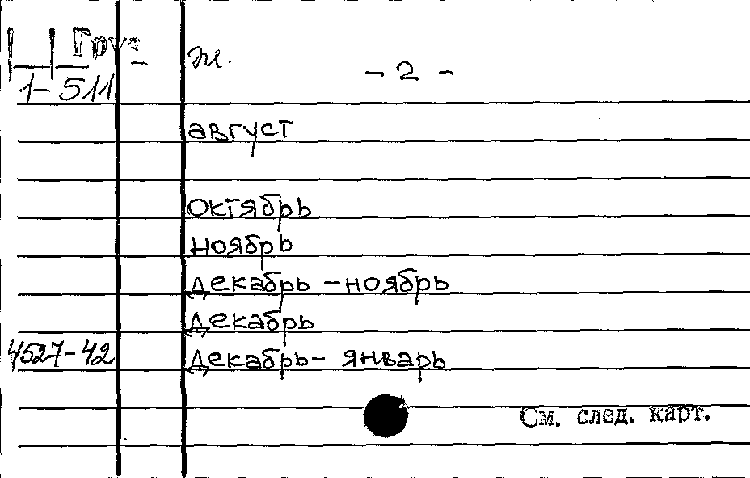 Груз
ж.
- 2 -
1-511
август
октябрь
ноябрь
декабрь - ноябрь
декабрь
4527-42 декабрь - январь
См. след. карт.